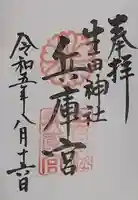 奉拝
生田神社
兵庫宮
令和五年八月十六日